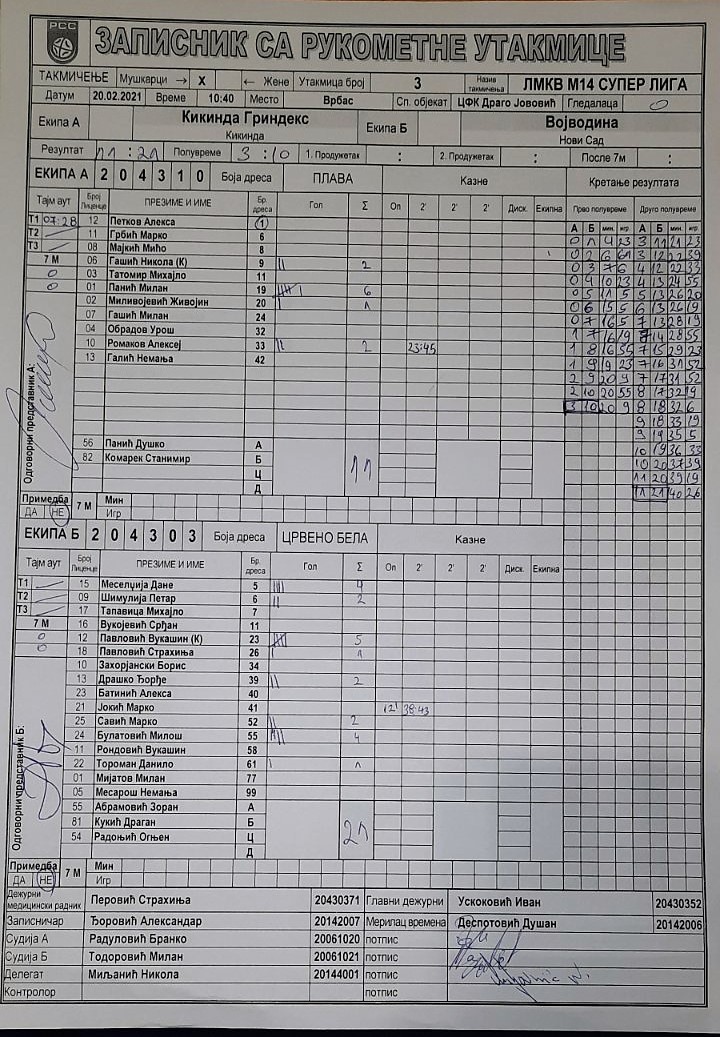 РСС
ЗАПИСНИК СА РУКОМЕТНЕ УТАКМИЦЕ
ТАКМИЧЕЊЕ Мушкарци → X ← Жене Утакмица број 3 Назив такмичења ЛМКВ М14 СУПЕР ЛИГА
Датум 20.02.2021 Време 10:40 Место Врбас Сп. објекат ЦФК Драго Јововић Гледалаца 0
Екипа А Кикинда Гриндекс Екипа Б Војводина
Кикинда Нови Сад
Резултат 11 : 21 Полувреме 3 : 10 1. Продужетак : 2. Продужетак : После 7м :
ЕКИПА А 2 0 4 3 1 0 Боја дреса ПЛАВА Казне Кретање резултата
Тајм аут Број Лиценце ПРЕЗИМЕ И ИМЕ Бр. дреса Гол Σ Оп 2' 2' 2' Диск. Екипна Прво полувреме Друго полувреме
А Б мин. игр А Б мин. игр
Т1 07:28 12 Петков Алекса 1
Т2 11 Грбић Марко 6
Т3 08 Мајкић Мићо 8
7 М 06 Гашић Никола (К) 9 2
0 03 Татомир Михајло 11
0 01 Панић Милан 19 6
02 Миливојевић Живојин 20 1
07 Гашић Милан 24
04 Обрадов Урош 32
10 Ромаков Алексеј 33 2 23:45
13 Галић Немања 42
0 1 4 23 3 11 21 23
0 2 6 61 3 12 22 39
0 3 7 6 4 12 22 33
0 4 10 23 4 13 24 55
0 5 11 5 5 13 26 20
0 6 15 5 6 13 26 19
0 7 16 5 7 13 28 19
1 7 16 19 7 14 28 55
1 8 16 55 7 15 29 23
1 9 19 23 7 16 31 52
2 9 20 9 7 17 31 52
2 10 20 55 8 17 32 19
3 10 20 9 8 18 32 6
9 18 33 19
9 19 35 5
10 19 36 33
10 20 37 39
11 20 39 19
11 21 40 26
Одговорни представник А:
56 Панић Душко А
82 Комарек Станимир Б 11
Ц
Д
Примедба 7 М Мин
ДА НЕ Игр
ЕКИПА Б 2 0 4 3 0 3 Боја дреса ЦРВЕНО БЕЛА Казне
Тајм аут Број Лиценце ПРЕЗИМЕ И ИМЕ Бр. дреса Гол Σ Оп 2' 2' 2' Диск. Екипна
Т1 15 Меселџија Дане 5 4
Т2 09 Шимулија Петар 6 2
Т3 17 Тапавица Михајло 7
7 М 16 Вукојевић Срђан 11
0 12 Павловић Вукашин (К) 23 5
0 18 Павловић Страхиња 26 1
10 Захорјански Борис 34
13 Драшко Ђорђе 39 2
23 Батинић Алекса 40
21 Јокић Марко 41 12' 38:43
25 Савић Марко 52 2
24 Булатовић Милош 55 4
11 Рондовић Вукашин 58
22 Тороман Данило 61 1
01 Мијатов Милан 77
05 Месарош Немања 99
Одговорни представник Б:
55 Абрамовић Зоран А
81 Кукић Драган Б 21
54 Радоњић Огњен Ц
Д
Примедба 7 М Мин
ДА НЕ Игр
Дежурни медицински радник Перовић Страхиња 20430371 Главни дежурни Ускоковић Иван 20430352
Записничар Ђоровић Александар 20142007 Мерилац времена Деспотовић Душан 20142006
Судија А Радуловић Бранко 20061020 потпис
Судија Б Тодоровић Милан 20061021 потпис
Делегат Миљанић Никола 20144001 потпис
Контролор потпис